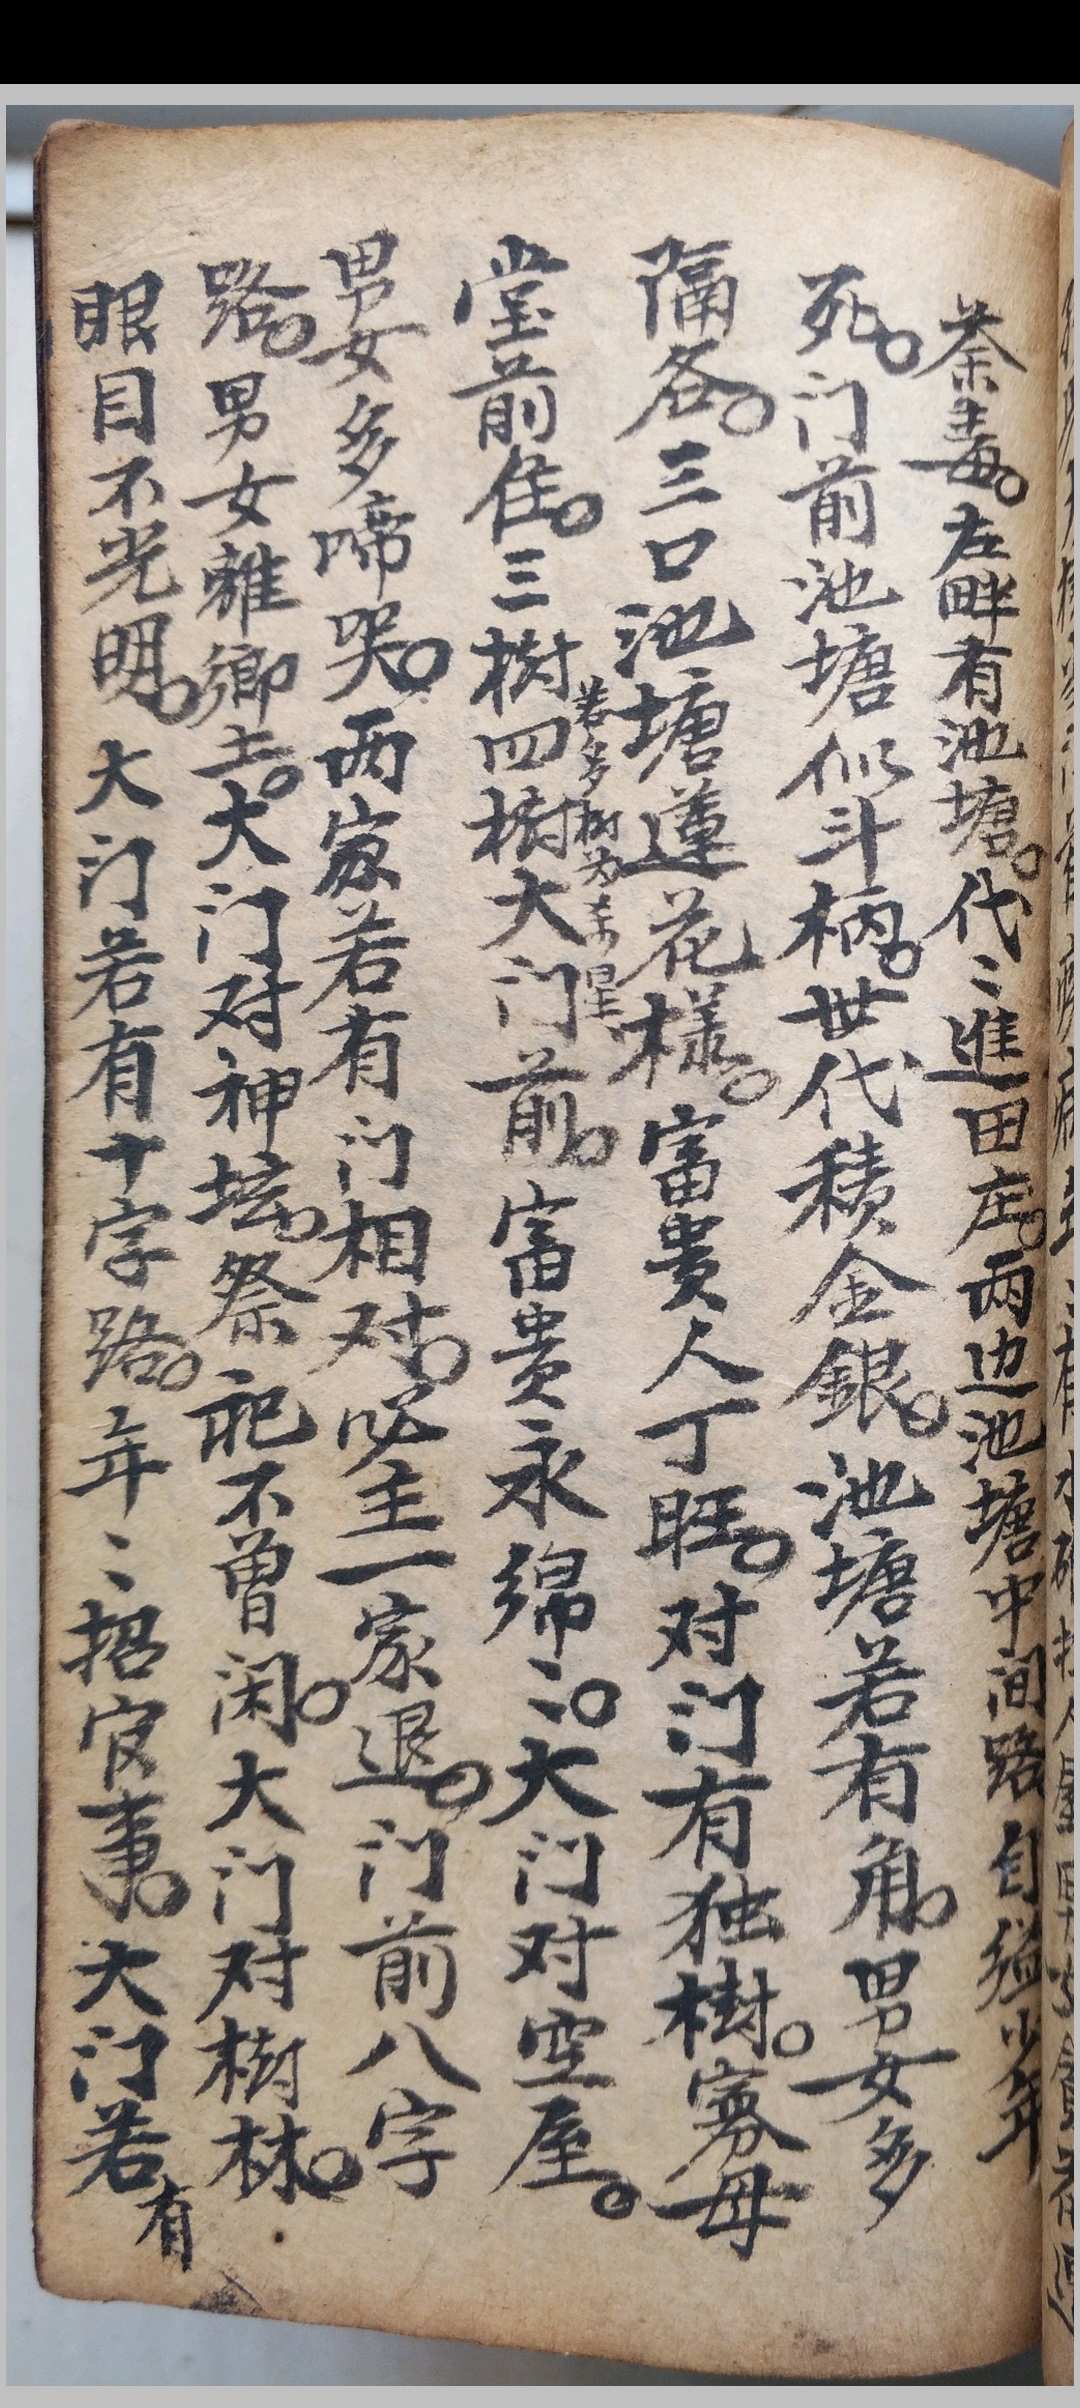 荼毒。左畔有池塘。代〻進田庄。两边池塘中间路自缢少年
死。门前池塘似斗柄。世代積金銀。池塘若有角。男女多
隔各。三口池塘蓮花樣。富貴人丁旺。对门有独樹。寡母
堂前住。三樹四樹大门前。富貴永綿〻。大门对空屋。
若多樹为 星
男女多啼哭。两家若有门相对。必主一家退。门前八字
路。男女離鄉土。大门对神坛。祭祀不曾闲。大门对樹林。
眼目不光明。大门若有十字路。年〻招官事。大门若有